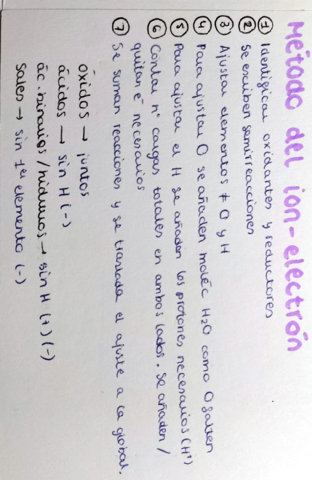 Método del ion-electrón
① Identificar oxidantes y reductores
② Se escriben semirreacciones
③ Ajustar elementos ≠ O y H
④ Para ajustar O se añaden moléc H₂O como O falten
⑤ Para ajustar el H se añaden los protones necesarios (H⁺)
⑥ Contar nº cargas totales en ambos lados. Se añaden /
quitan e⁻ necesarios
⑦ Se suman reacciones y se traslada el ajuste a la global.
óxidos → juntos
ácidos → sin H (-)
ác. binarios / hidruros → sin H (+) (-)
sales → sin 1er elemento (-)